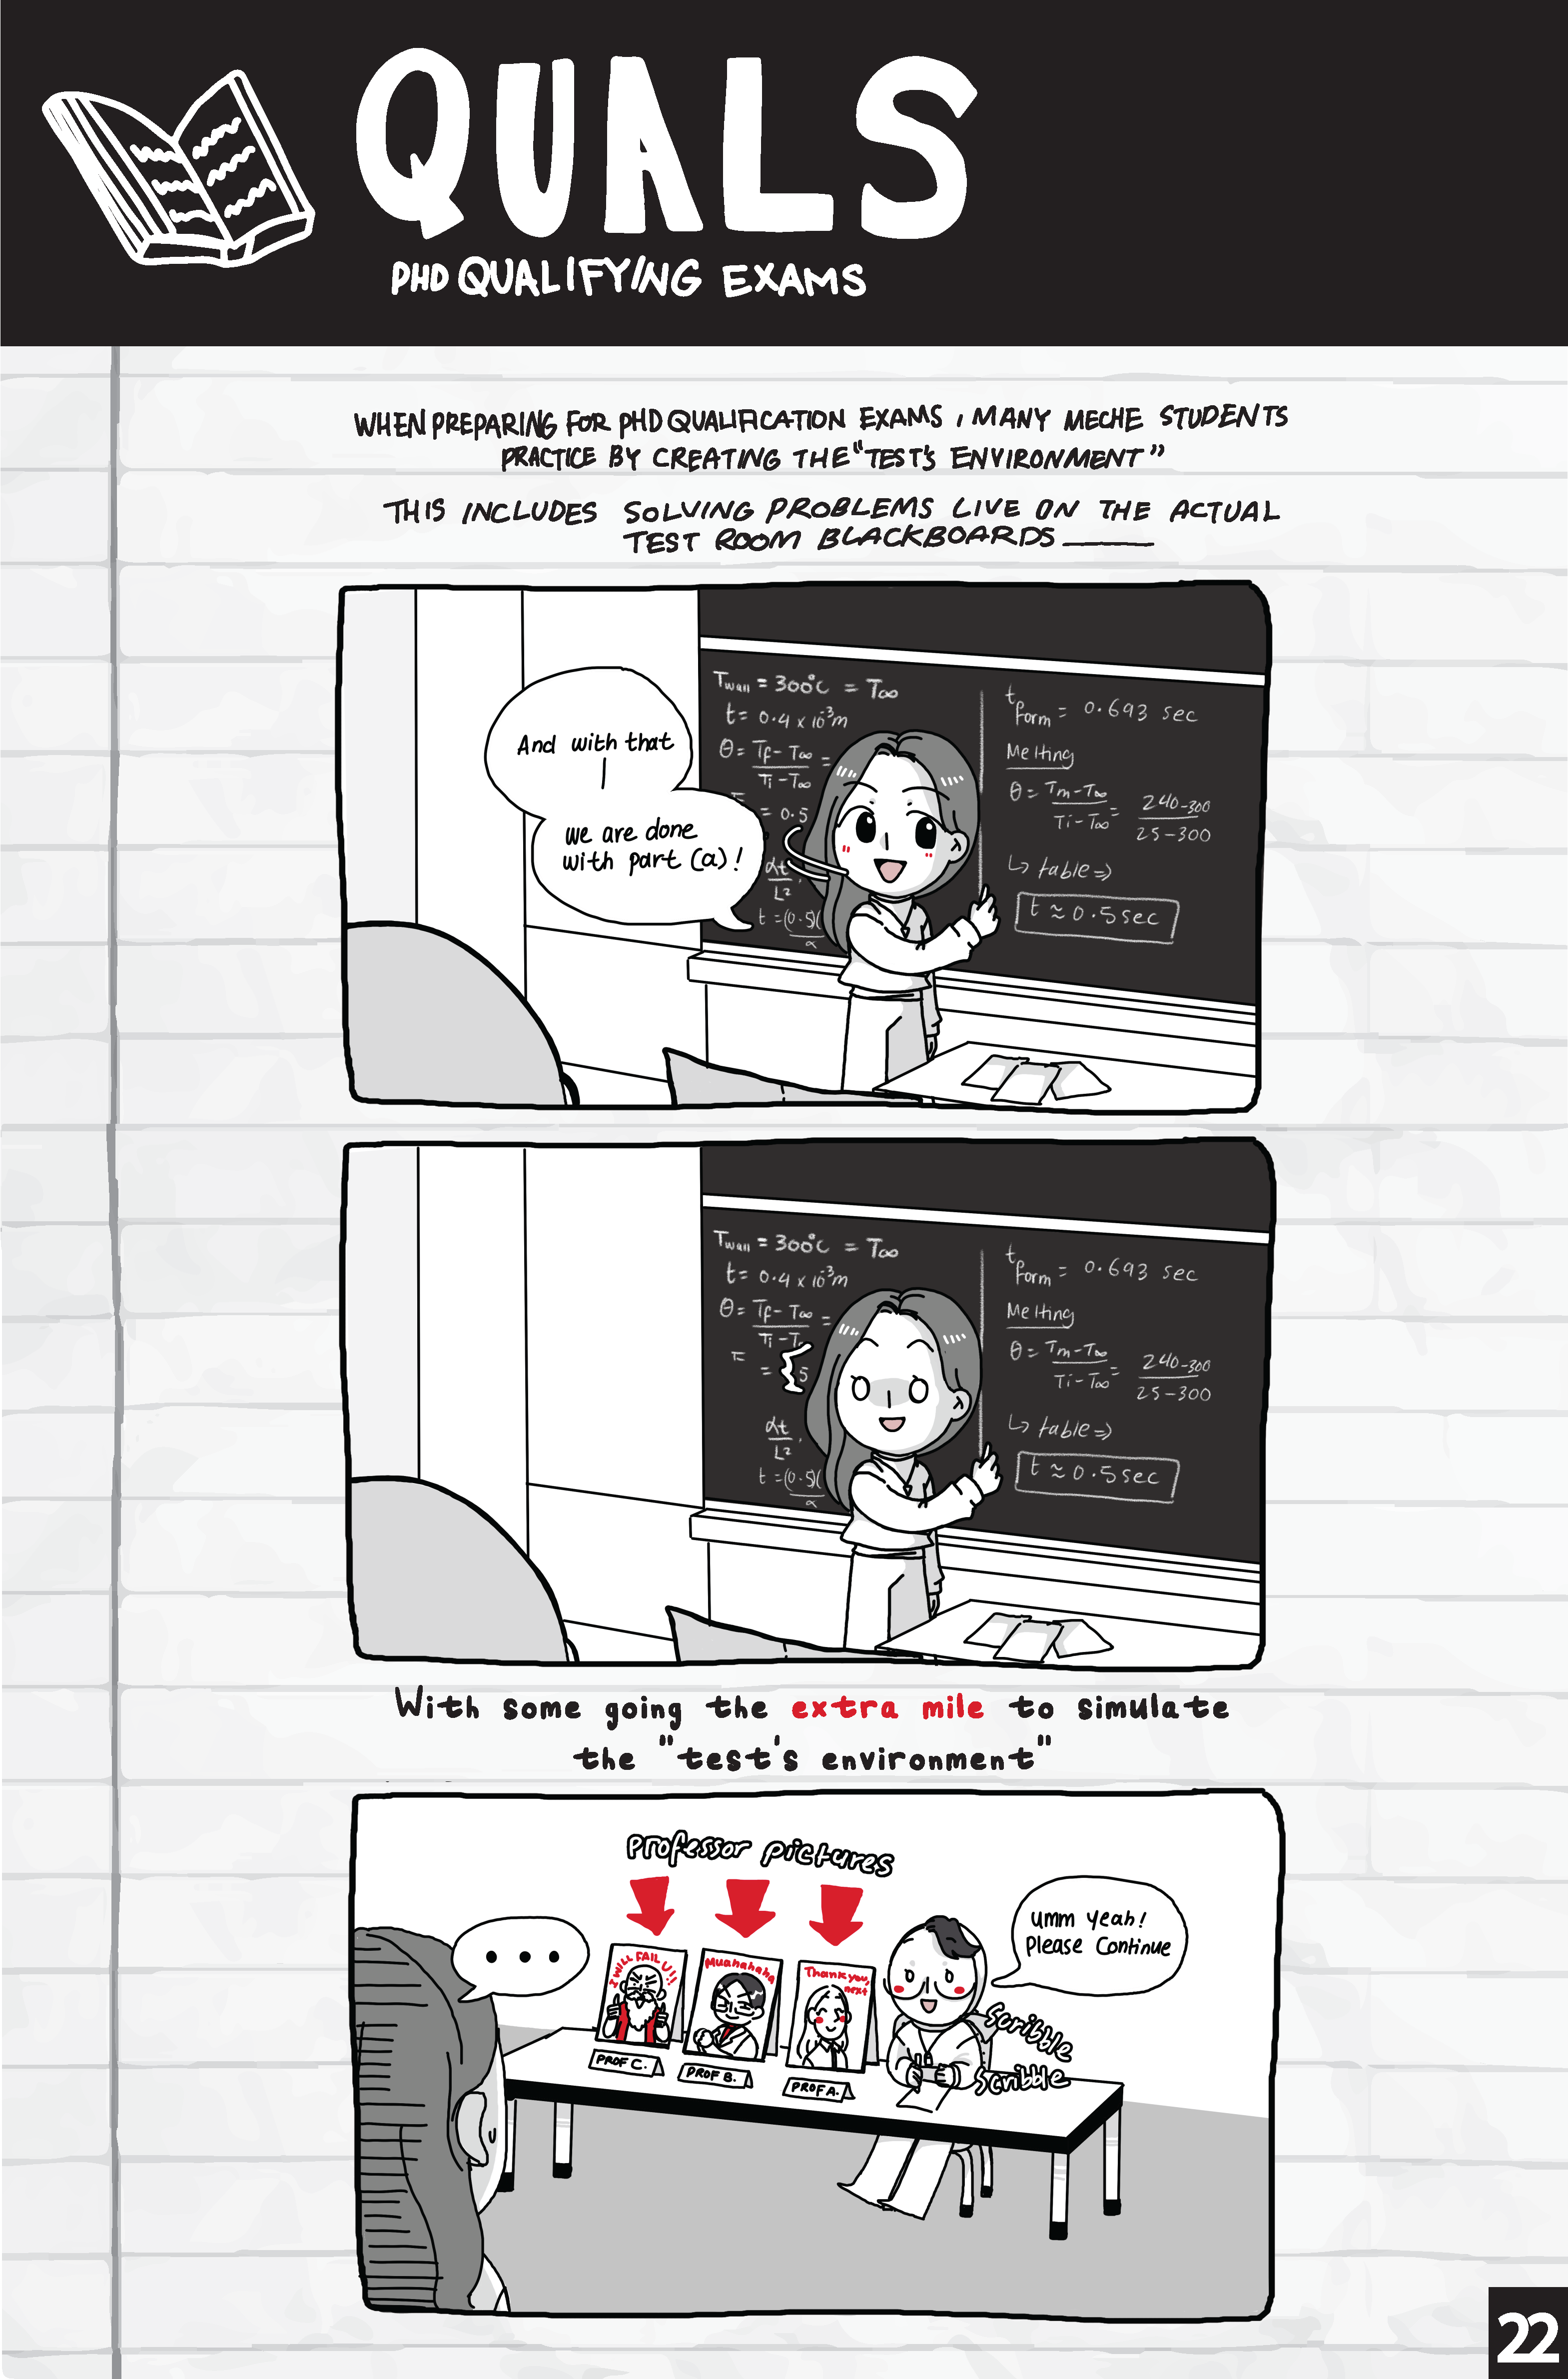 QUALS
PHD QUALIFYING EXAMS
WHEN PREPARING FOR PHD QUALIFICATION EXAMS, MANY MECHE STUDENTS
PRACTICE BY CREATING THE "TEST'S ENVIRONMENT"
THIS INCLUDES SOLVING PROBLEMS LIVE ON THE ACTUAL
TEST ROOM BLACKBOARDS
And with that
we are done
with part (a)!
Twall = 300°C = T∞
t = 0.4 x 10⁻³m
θ = Tf - T∞ =
Ti - T∞
= 0.5
αt
L²
t = (0.5)(
α
tform = 0.693 sec
Melting
θ = Tm - T∞ = 240-300
Ti - T∞ 25-300
↳ table ⇒
t ≈ 0.5 sec
Twall = 300°C = T∞
t = 0.4 x 10⁻³m
θ = Tf - T∞ =
Ti - T
= 5
αt
L²
t = (0.5)(
α
tform = 0.693 sec
Melting
θ = Tm - T∞ = 240-300
Ti - T∞ 25-300
↳ table ⇒
t ≈ 0.5 sec
With some going the extra mile to simulate
the "test's environment"
professor pictures
...
I WILL FAIL U!!!
Muahahaha
Thank you,
next
PROF C.
PROF B.
PROF A.
Umm Yeah!
Please Continue
Scribble
Scribble
22